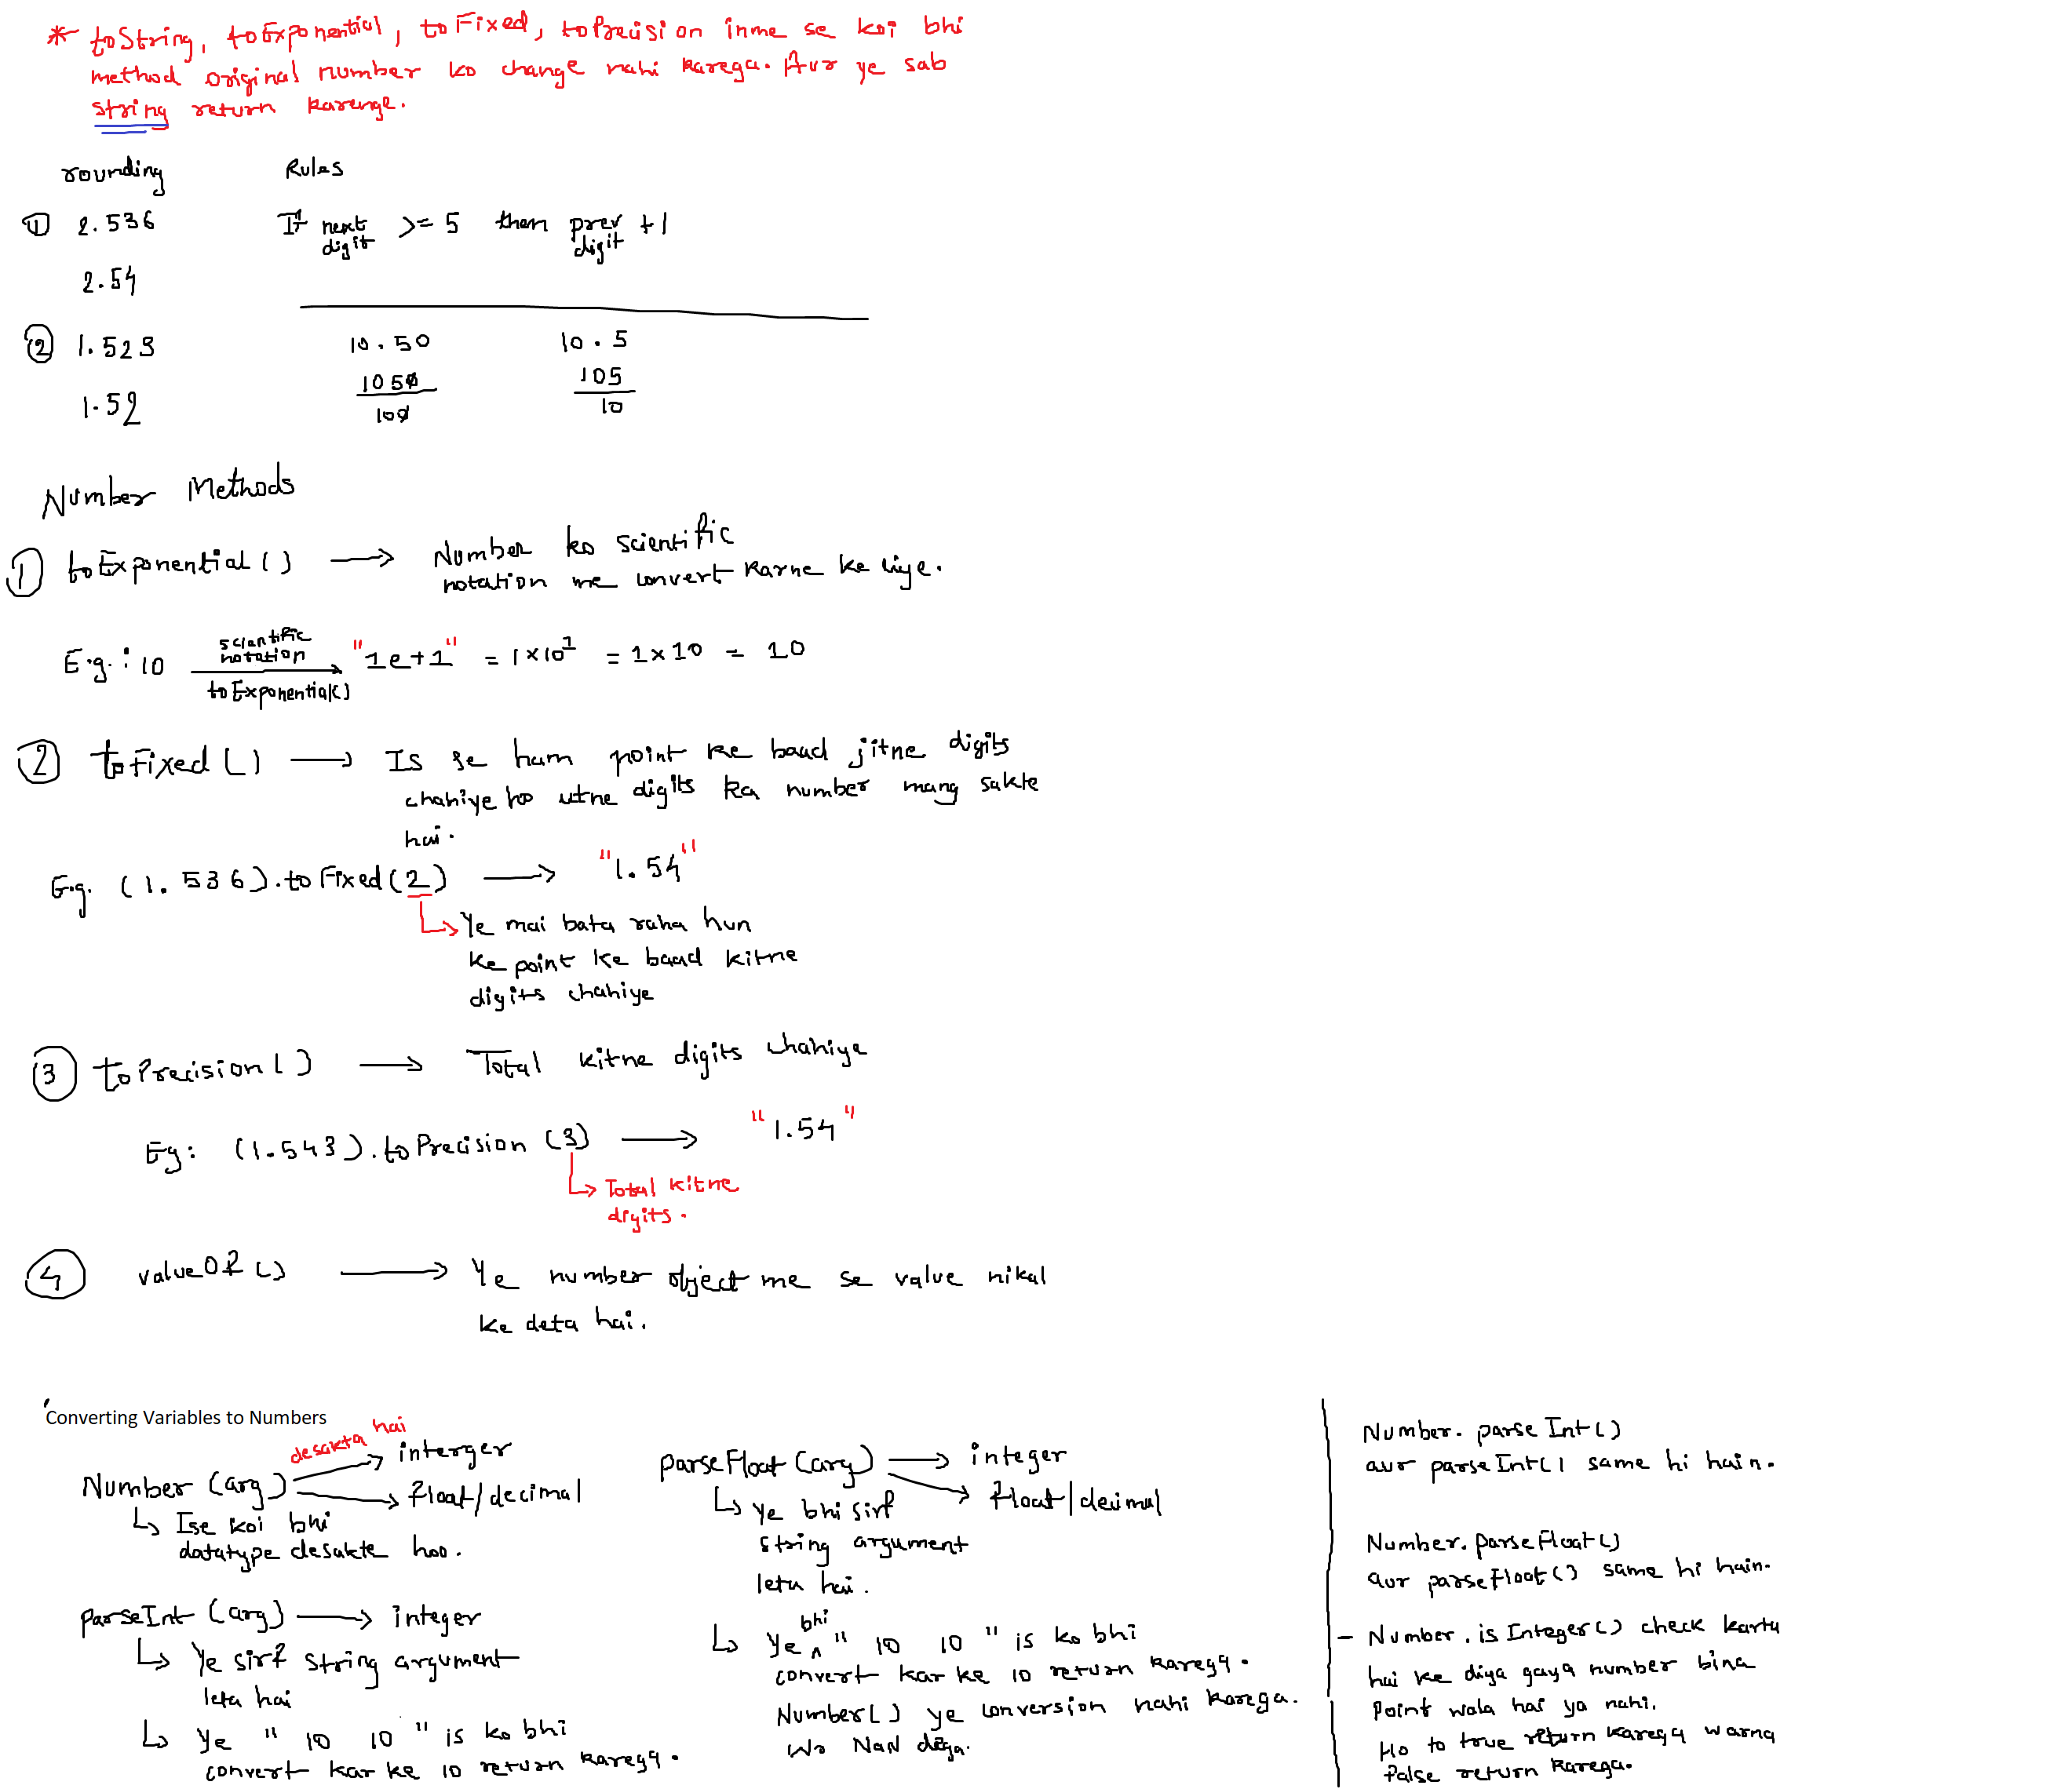 * toString, toExponential, toFixed, toPrecision inme se koi bhi
method original number ko change nahi karega. Aur ye sab
string return karenge.
rounding Rules
① 2.536 If next digit >= 5 then prev digit +1
2.54
② 1.523 10.50 10.5
1.52 1050/100 105/10
Number Methods
① toExponential() → Number ko scientific
notation me convert karne ke liye.
E.g.: 10 scientific notation toExponential() → "1e+1" = 1×10¹ = 1×10 = 10
② toFixed() → Is se hum point ke baad jitne digits
chahiye ho utne digits ka number mang sakte
hai.
E.g. (1.536).toFixed(2) → "1.54"
↳ Ye mai bata raha hun
ke point ke baad kitne
digits chahiye
③ toPrecision() → Total kitne digits chahiye
Eg: (1.543).toPrecision(3) → "1.54"
↳ Total kitne
digits.
④ valueOf() → Ye number object me se value nikal
ke deta hai.
Converting Variables to Numbers
desakta hai
Number(arg) → interger
→ float/decimal
↳ Ise koi bhi
datatype desakte hoo.
parseInt(arg) → integer
↳ Ye sirf string argument
leta hai
↳ Ye "10 10" is ko bhi
convert kar ke 10 return karega.
parseFloat(arg) → integer
→ float/decimal
↳ Ye bhi sirf
string argument
leta hai.
↳ Ye bhi "10 10" is ko bhi
convert kar ke 10 return karega.
Number() ye conversion nahi karega.
Wo NaN dega.
Number.parseInt()
aur parseInt() same hi hain.
Number.parseFloat()
aur parseFloat() same hi hain.
- Number.isInteger() check karta
hai ke diya gaya number bina
point wala hai ya nahi.
Ho to true return karega warna
false return karega.